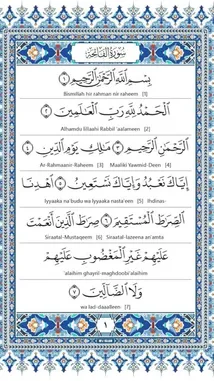 سُورَةُ الفَاتِحَةِ
بِسْمِ اللَّهِ الرَّحْمَٰنِ الرَّحِيمِ ١
Bismillah hir rahman nir raheem [1]
الْحَمْدُ لِلَّهِ رَبِّ الْعَالَمِينَ ٢
Alhamdu lillaahi Rabbil 'aalameen [2]
الرَّحْمَٰنِ الرَّحِيمِ ٣ مَٰلِكِ يَوْمِ الدِّينِ ٤
Ar-Rahmaanir-Raheem [3] Maaliki Yawmid-Deen [4]
إِيَّاكَ نَعْبُدُ وَإِيَّاكَ نَسْتَعِينُ ٥ اهْدِنَا
Iyyaaka na'budu wa Iyyaaka nasta'een [5] Ihdinas-
الصِّرَاطَ الْمُسْتَقِيمَ ٦ صِرَاطَ الَّذِينَ أَنْعَمْتَ
Siraatal-Mustaqeem [6] Siraatal-lazeena an'amta
عَلَيْهِمْ غَيْرِ الْمَغْضُوبِ عَلَيْهِمْ
'alaihim ghayril-maghdoobi 'alaihim
وَلَا الضَّالِّينَ ٧
wa lad-daaalleen [7]
١